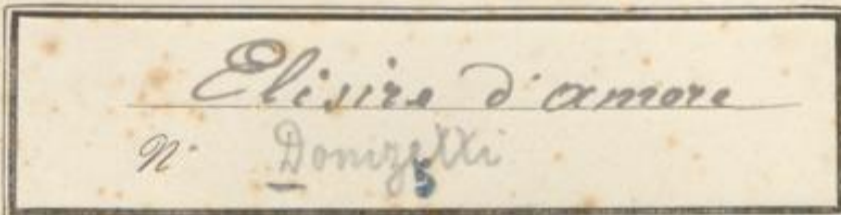 Elisire d'amore
N. Donizetti
5